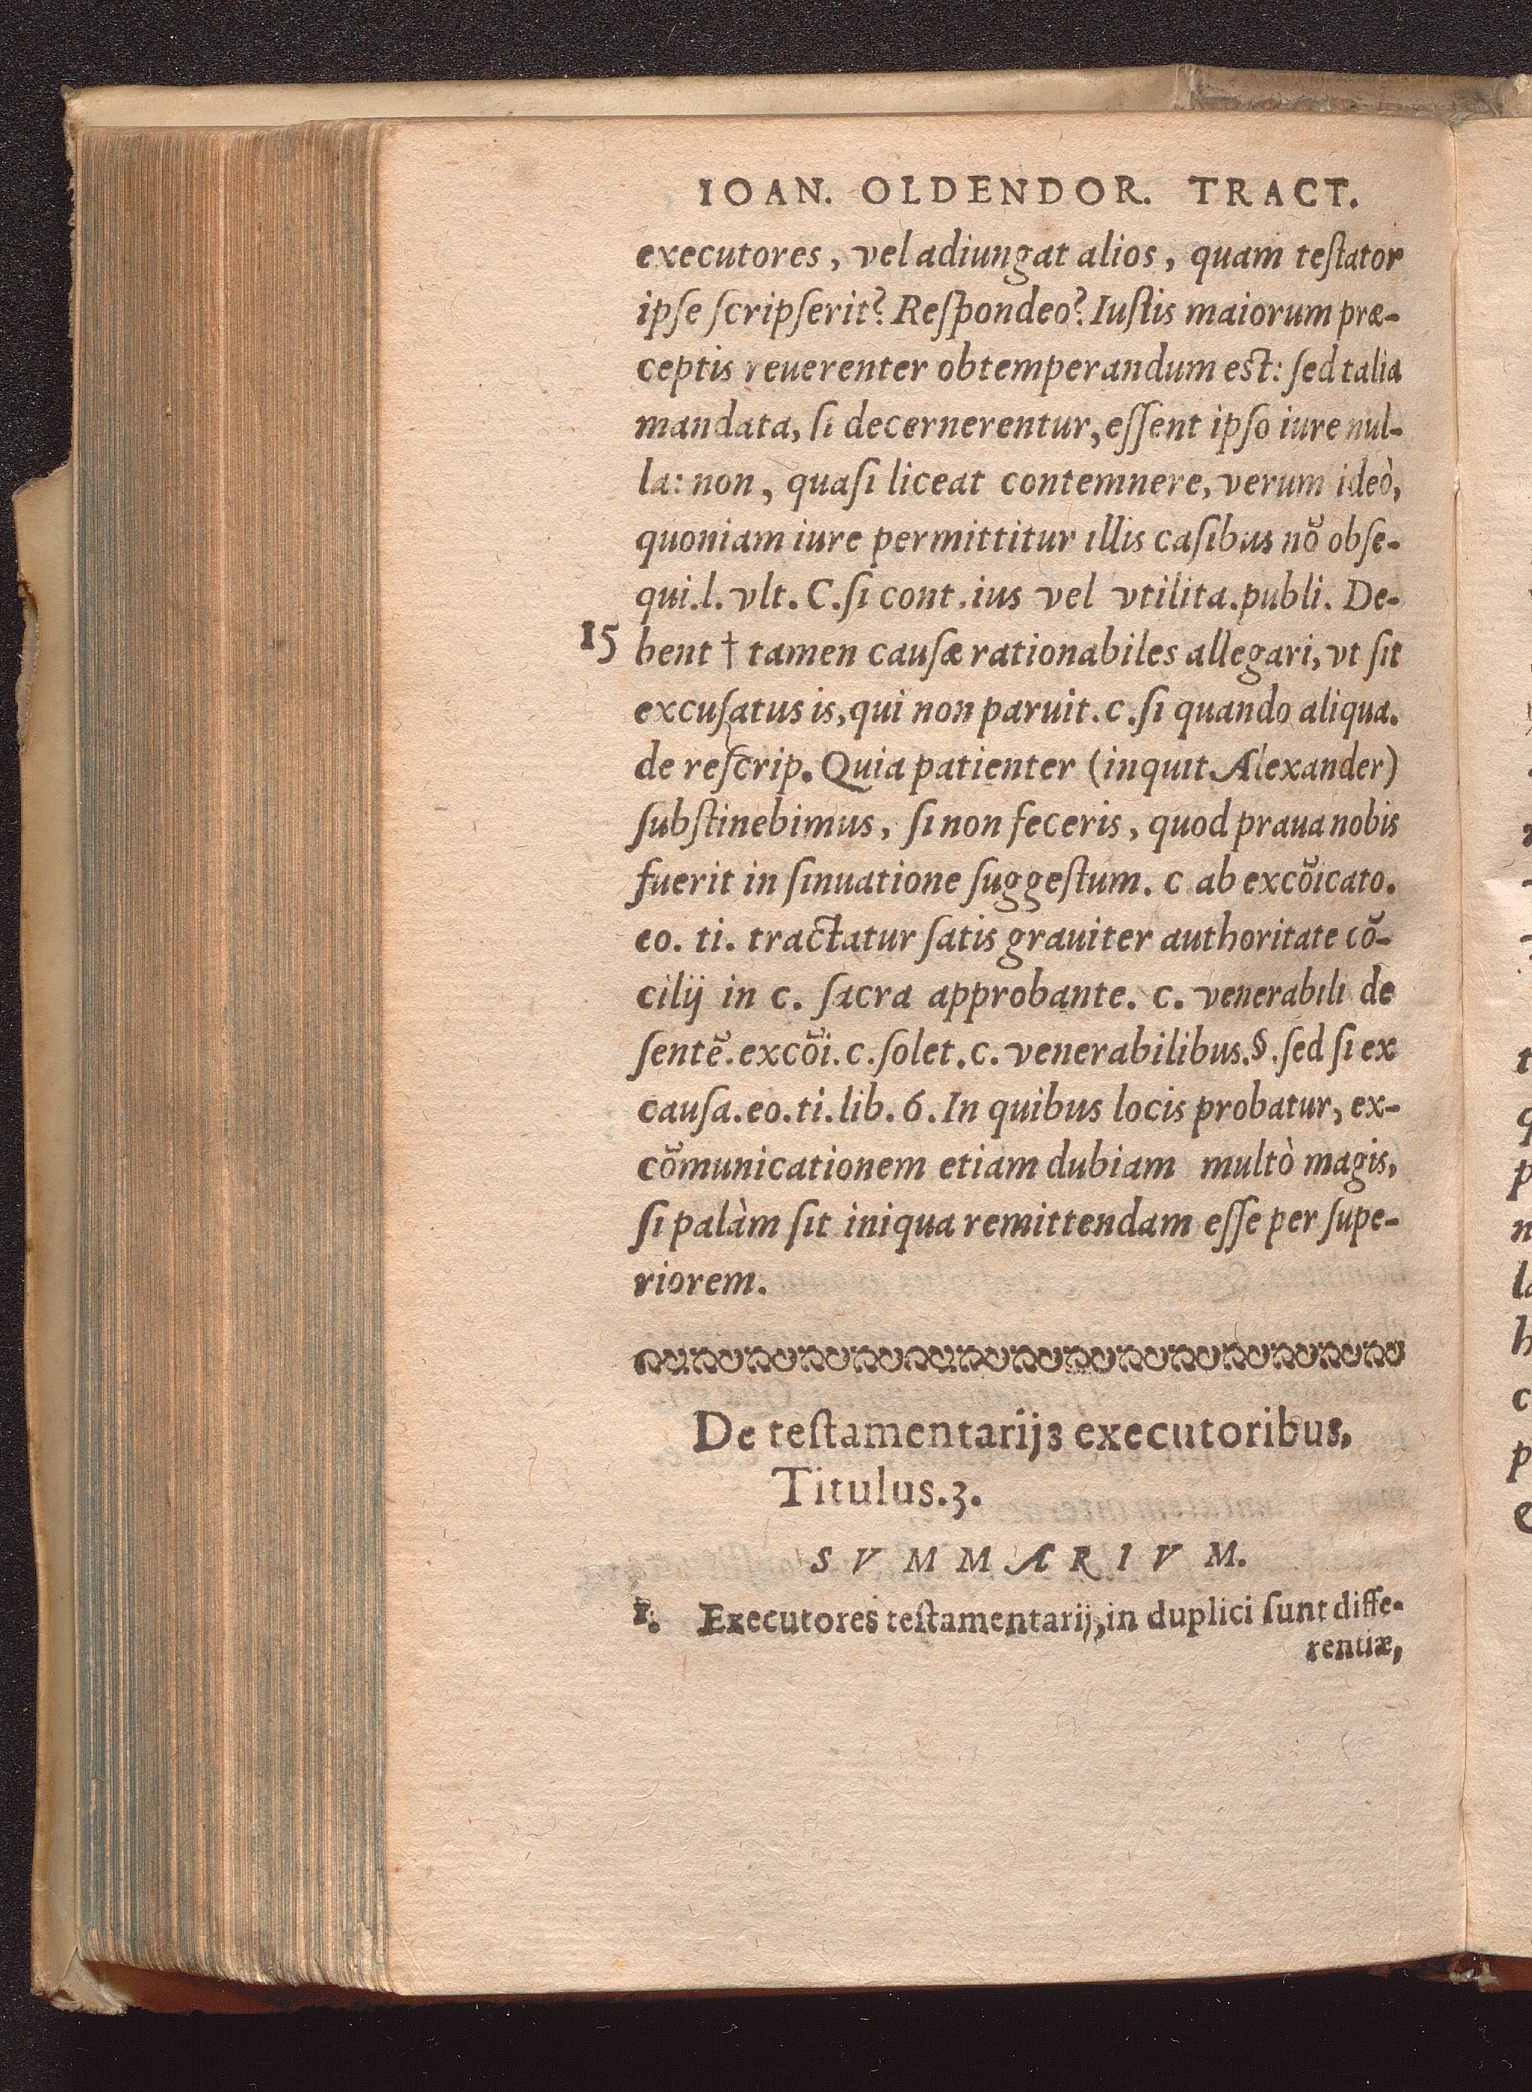 IOAN. OLDENDOR. TRACT.
executores, vel adiungat alios, quam teſtator
ipſe ſcripſerit? Reſpondeo? Iuſtis maiorum præ-
ceptis reuerenter obtemperandum est: ſed talia
mandata, ſi decernerentur, eſſent ipſo iure nul-
la: non, quaſi liceat contemnere, verum ideò,
quoniam iure permittitur illis caſibus nõ obſe-
qui.l. vlt. C. ſi cont. ius vel vtilita. publi. De-
15 bent † tamen cauſæ rationabiles allegari, vt ſit
excuſatus is, qui non paruit. c. ſi quando aliqua.
de reſcrip. Quia patienter (inquit Alexander)
ſubſtinebimus, ſi non feceris, quod praua nobis
fuerit in ſinuatione ſuggeſtum. c ab excõicato.
eo. ti. tractatur ſatis grauiter authoritate cõ-
cilij in c. ſacra approbante. c. venerabili de
ſentẽ. excõi. c. ſolet. c. venerabilibus. §. ſed ſi ex
cauſa. eo. ti. lib. 6. In quibus locis probatur, ex-
cõmunicationem etiam dubiam multò magis,
ſi palàm ſit iniqua remittendam eſſe per ſupe-
riorem.
De teſtamentarijs executoribus,
Titulus. 3.
SVMMARIVM.
1. Executores teſtamentarij, in duplici ſunt diffe-
rentiæ,